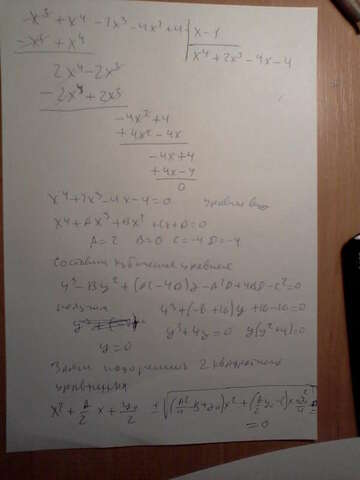 x⁵ + x⁴ - 2x³ - 4x² + 4 | x - 1
- x⁵ + x⁴ | x⁴ + 2x³ - 4x - 4
2x⁴ - 2x³
- 2x⁴ + 2x³
-4x² + 4
+ 4x² - 4x
-4x + 4
+ 4x - 4
0
x⁴ + 2x³ - 4x - 4 = 0 уравнение
x⁴ + Ax³ + Bx² + Cx + D = 0
A = 2 B = 0 C = -4 D = -4
Составим кубическое уравнение
y³ - By² + (AC - 4D)y - A²D + 4BD - C² = 0
получим y³ + (-8 + 16)y + 16 - 16 = 0
y³ + 4y = 0 y(y² + 4) = 0
y = 0
Затем 2 квадратного
уравнения
x² + A/2 x + y₁/2 ± √((A²/4 - B + y₁)x² + (A/2 y₁ - C)x + y₁²/4 - D
= 0